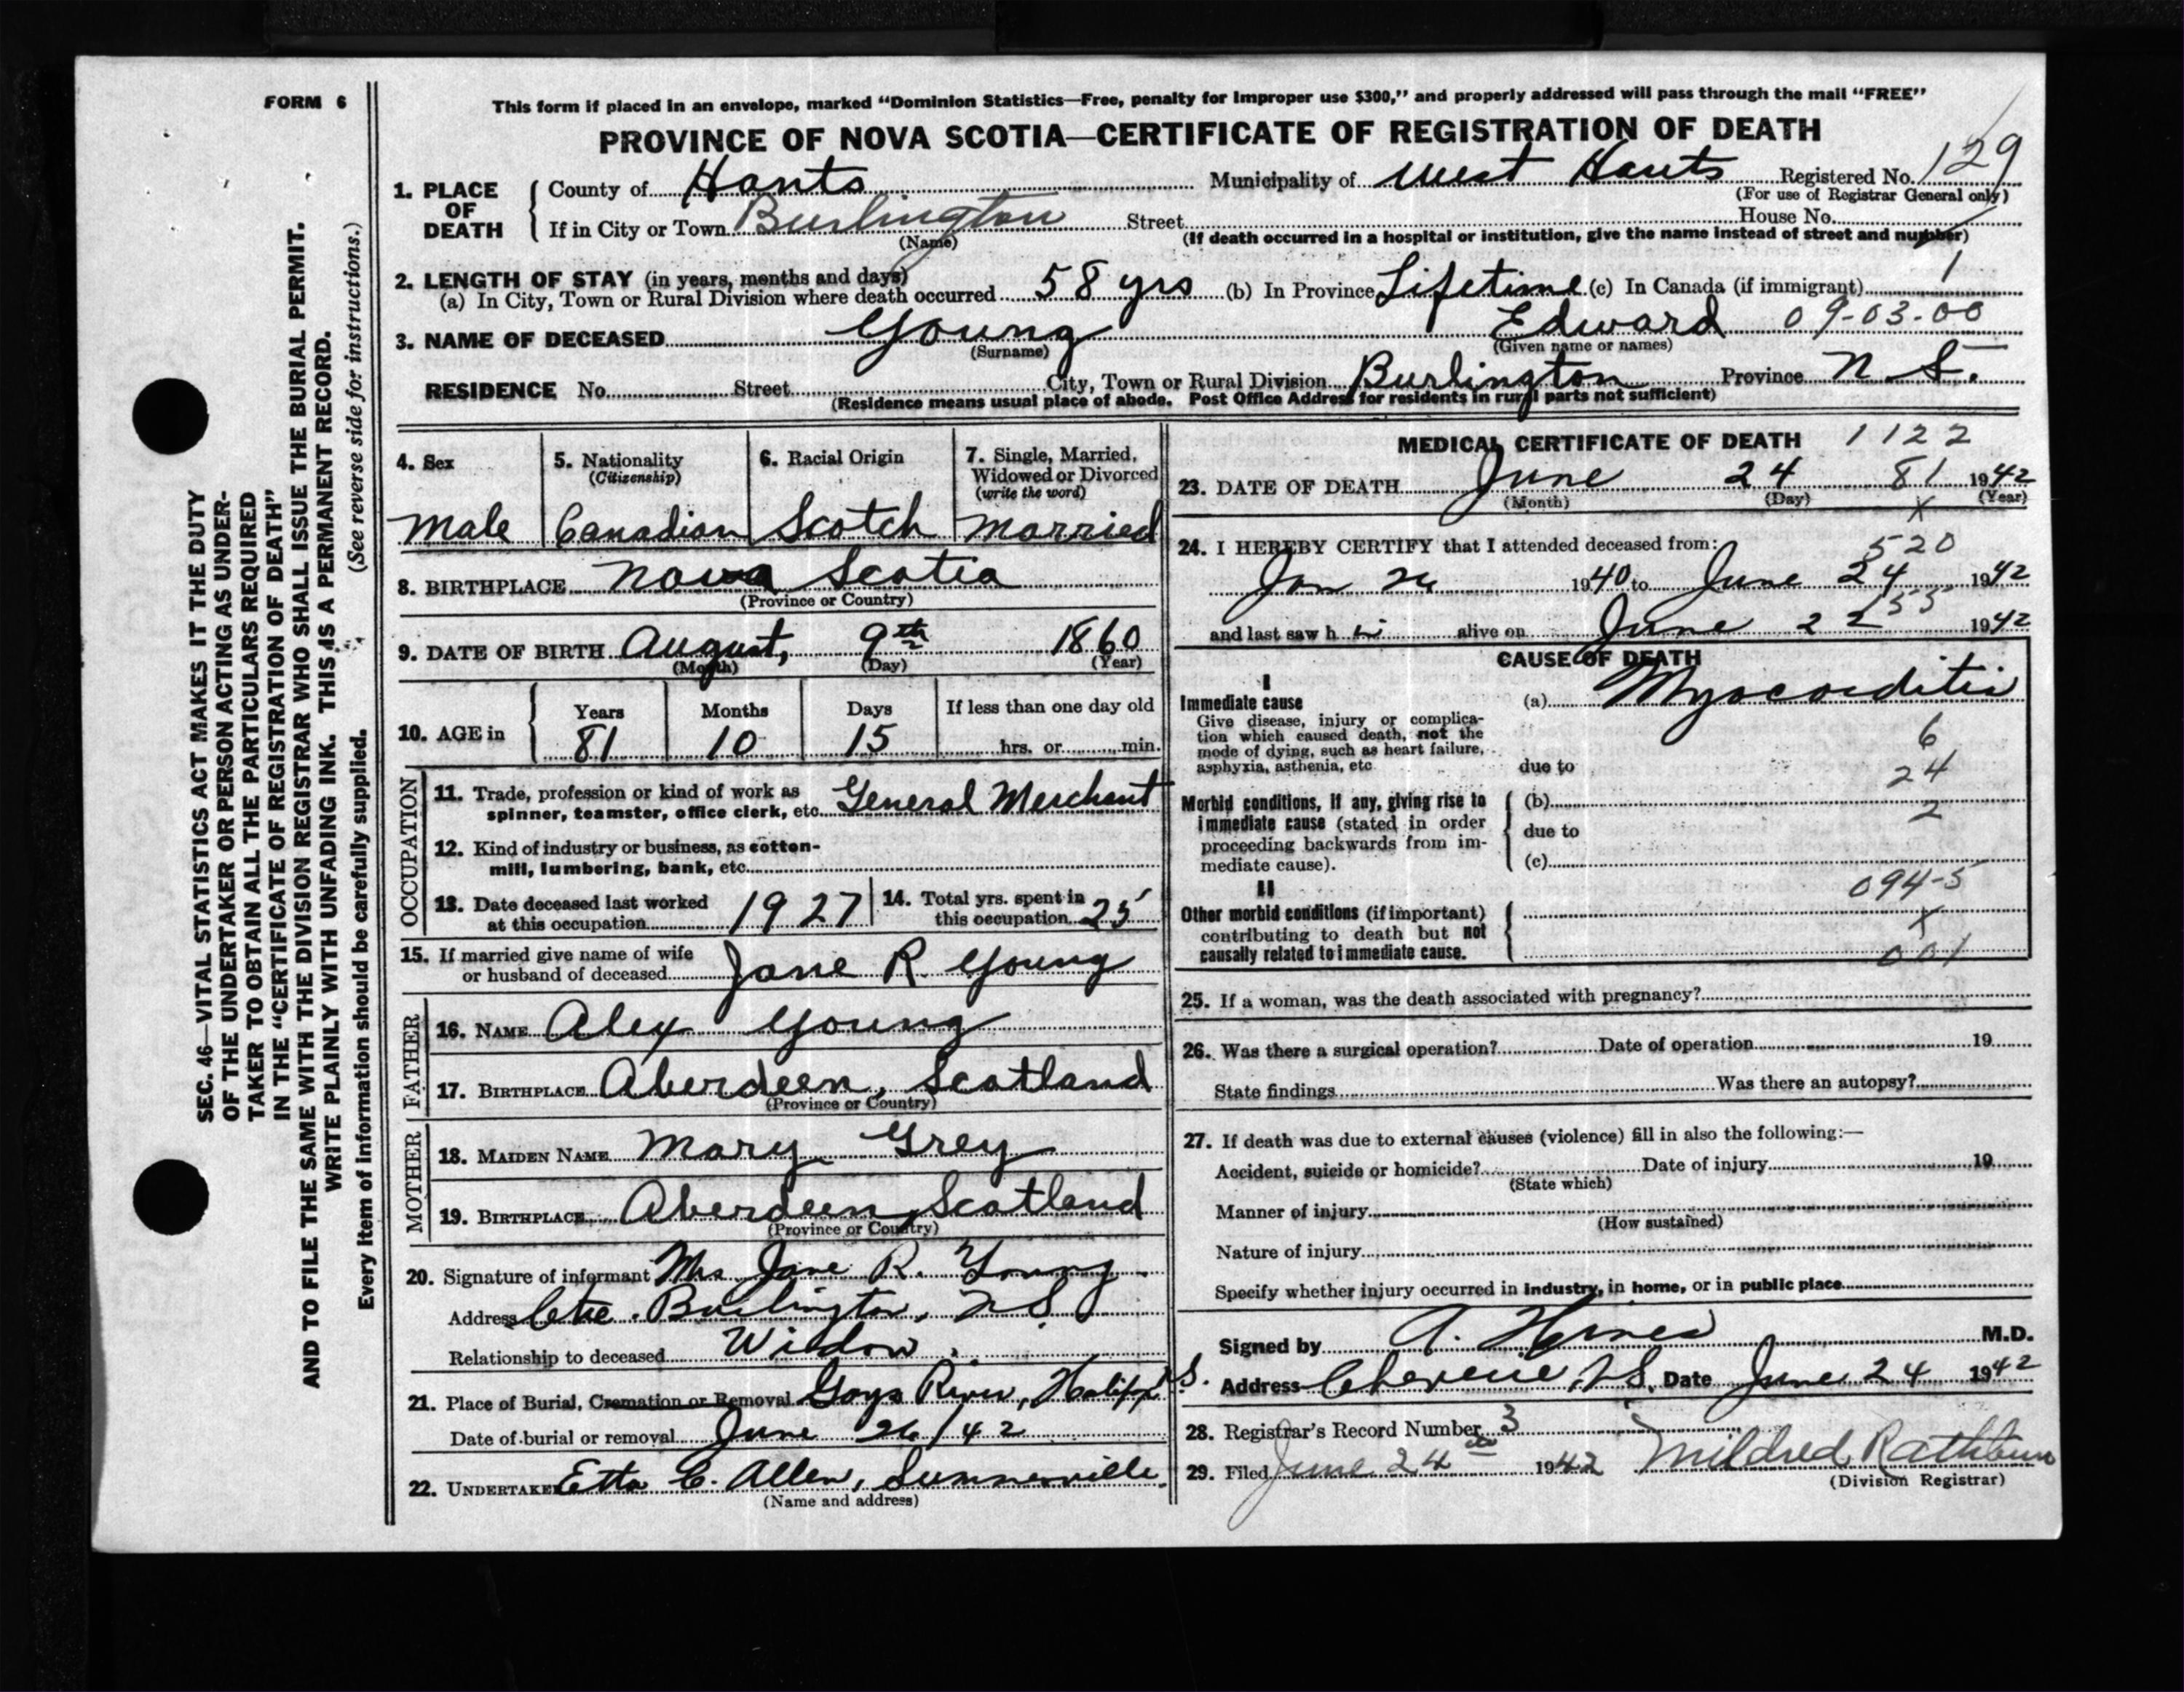 FORM 6
This form if placed in an envelope, marked "Dominion Statistics—Free, penalty for improper use $300," and properly addressed will pass through the mail "FREE"
PROVINCE OF NOVA SCOTIA—CERTIFICATE OF REGISTRATION OF DEATH
SEC. 46—VITAL STATISTICS ACT MAKES IT THE DUTY
OF THE UNDERTAKER OR PERSON ACTING AS UNDER-
TAKER TO OBTAIN ALL THE PARTICULARS REQUIRED
IN THE "CERTIFICATE OF REGISTRATION OF DEATH"
AND TO FILE THE SAME WITH THE DIVISION REGISTRAR WHO SHALL ISSUE THE BURIAL PERMIT.
WRITE PLAINLY WITH UNFADING INK. THIS IS A PERMANENT RECORD.
Every item of information should be carefully supplied. (See reverse side for instructions.)
1. PLACE OF DEATH County of Hants Municipality of West Hants Registered No. 129
(For use of Registrar General only)
If in City or Town Burlington Street House No.
(Name) (If death occurred in a hospital or institution, give the name instead of street and number)
2. LENGTH OF STAY (in years, months and days) 1
(a) In City, Town or Rural Division where death occurred 58 yrs (b) In Province Lifetime (c) In Canada (if immigrant)
3. NAME OF DECEASED Young Edward 09-03-00
(Surname) (Given name or names)
RESIDENCE No. Street City, Town or Rural Division Burlington Province N.S.
(Residence means usual place of abode. Post Office Address for residents in rural parts not sufficient)
4. Sex
Male
5. Nationality
(Citizenship)
Canadian
6. Racial Origin
Scotch
7. Single, Married,
Widowed or Divorced
(write the word)
Married
8. BIRTHPLACE Nova Scotia
(Province or Country)
9. DATE OF BIRTH August, 9th 1860
(Month) (Day) (Year)
10. AGE in Years Months Days If less than one day old
81 10 15 hrs. or min.
OCCUPATION
11. Trade, profession or kind of work as
spinner, teamster, office clerk, etc. General Merchant
12. Kind of industry or business, as cotton-
mill, lumbering, bank, etc.
13. Date deceased last worked
at this occupation 1927
14. Total yrs. spent in
this occupation 25
15. If married give name of wife
or husband of deceased Jane R Young
FATHER
16. NAME Alex Young
17. BIRTHPLACE Aberdeen, Scotland
(Province or Country)
MOTHER
18. MAIDEN NAME Mary Grey
19. BIRTHPLACE Aberdeen, Scotland
(Province or Country)
20. Signature of informant Mrs Jane R. Young
Address Burlington, N S
Relationship to deceased Widow
21. Place of Burial, Cremation or Removal Gays River, Halifax N.S.
Date of burial or removal June 26/42
22. UNDERTAKER Etta C. Allen, Summerville
(Name and address)
MEDICAL CERTIFICATE OF DEATH 1122
23. DATE OF DEATH June 24 81 1942
(Month) (Day) (Year)
X
24. I HEREBY CERTIFY that I attended deceased from: 520
Jan 1940 to June 24 1942
55
and last saw h alive on June 22 1942
CAUSE OF DEATH
I
Immediate cause (a) Myocarditis
Give disease, injury or complica-
tion which caused death, not the
mode of dying, such as heart failure,
asphyxia, asthenia, etc
6
due to 24
Morbid conditions, if any, giving rise to
immediate cause (stated in order
proceeding backwards from im-
mediate cause).
(b) 2
due to
(c)
II 094-5
Other morbid conditions (if important)
contributing to death but not
causally related to immediate cause.
X
001
25. If a woman, was the death associated with pregnancy?
26. Was there a surgical operation? Date of operation 19
State findings Was there an autopsy?
27. If death was due to external causes (violence) fill in also the following:—
Accident, suicide or homicide? Date of injury 19
(State which)
Manner of injury
(How sustained)
Nature of injury
Specify whether injury occurred in industry, in home, or in public place
Signed by A. M.D.
Address Cheverie, N.S. Date June 24 1942
28. Registrar's Record Number 3
29. Filed June 24th 1942 Mildred Rathbun
(Division Registrar)